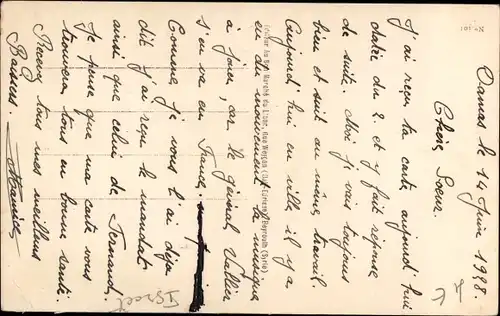 Damas le 14 Juin 1928.
Chère Soeur
J'ai reçu ta carte aujourd'hui
datée du 2. et y fait réponse
de suite. Moi je vais toujours
bien et suit au même travail.
Aujourd'hui en ville il y a
eu du mouvement la musique
à jouer, car le général Vallier
s'en va en France,
Comme je vous l'ai déja
dit j'ai reçu le mandat
ainsi que celui de Fernand.
Je pense que ma carte vous
trouvera tous en bonne santé.
Recevez tous mes meilleurs
Baisers. Maurice
Israel